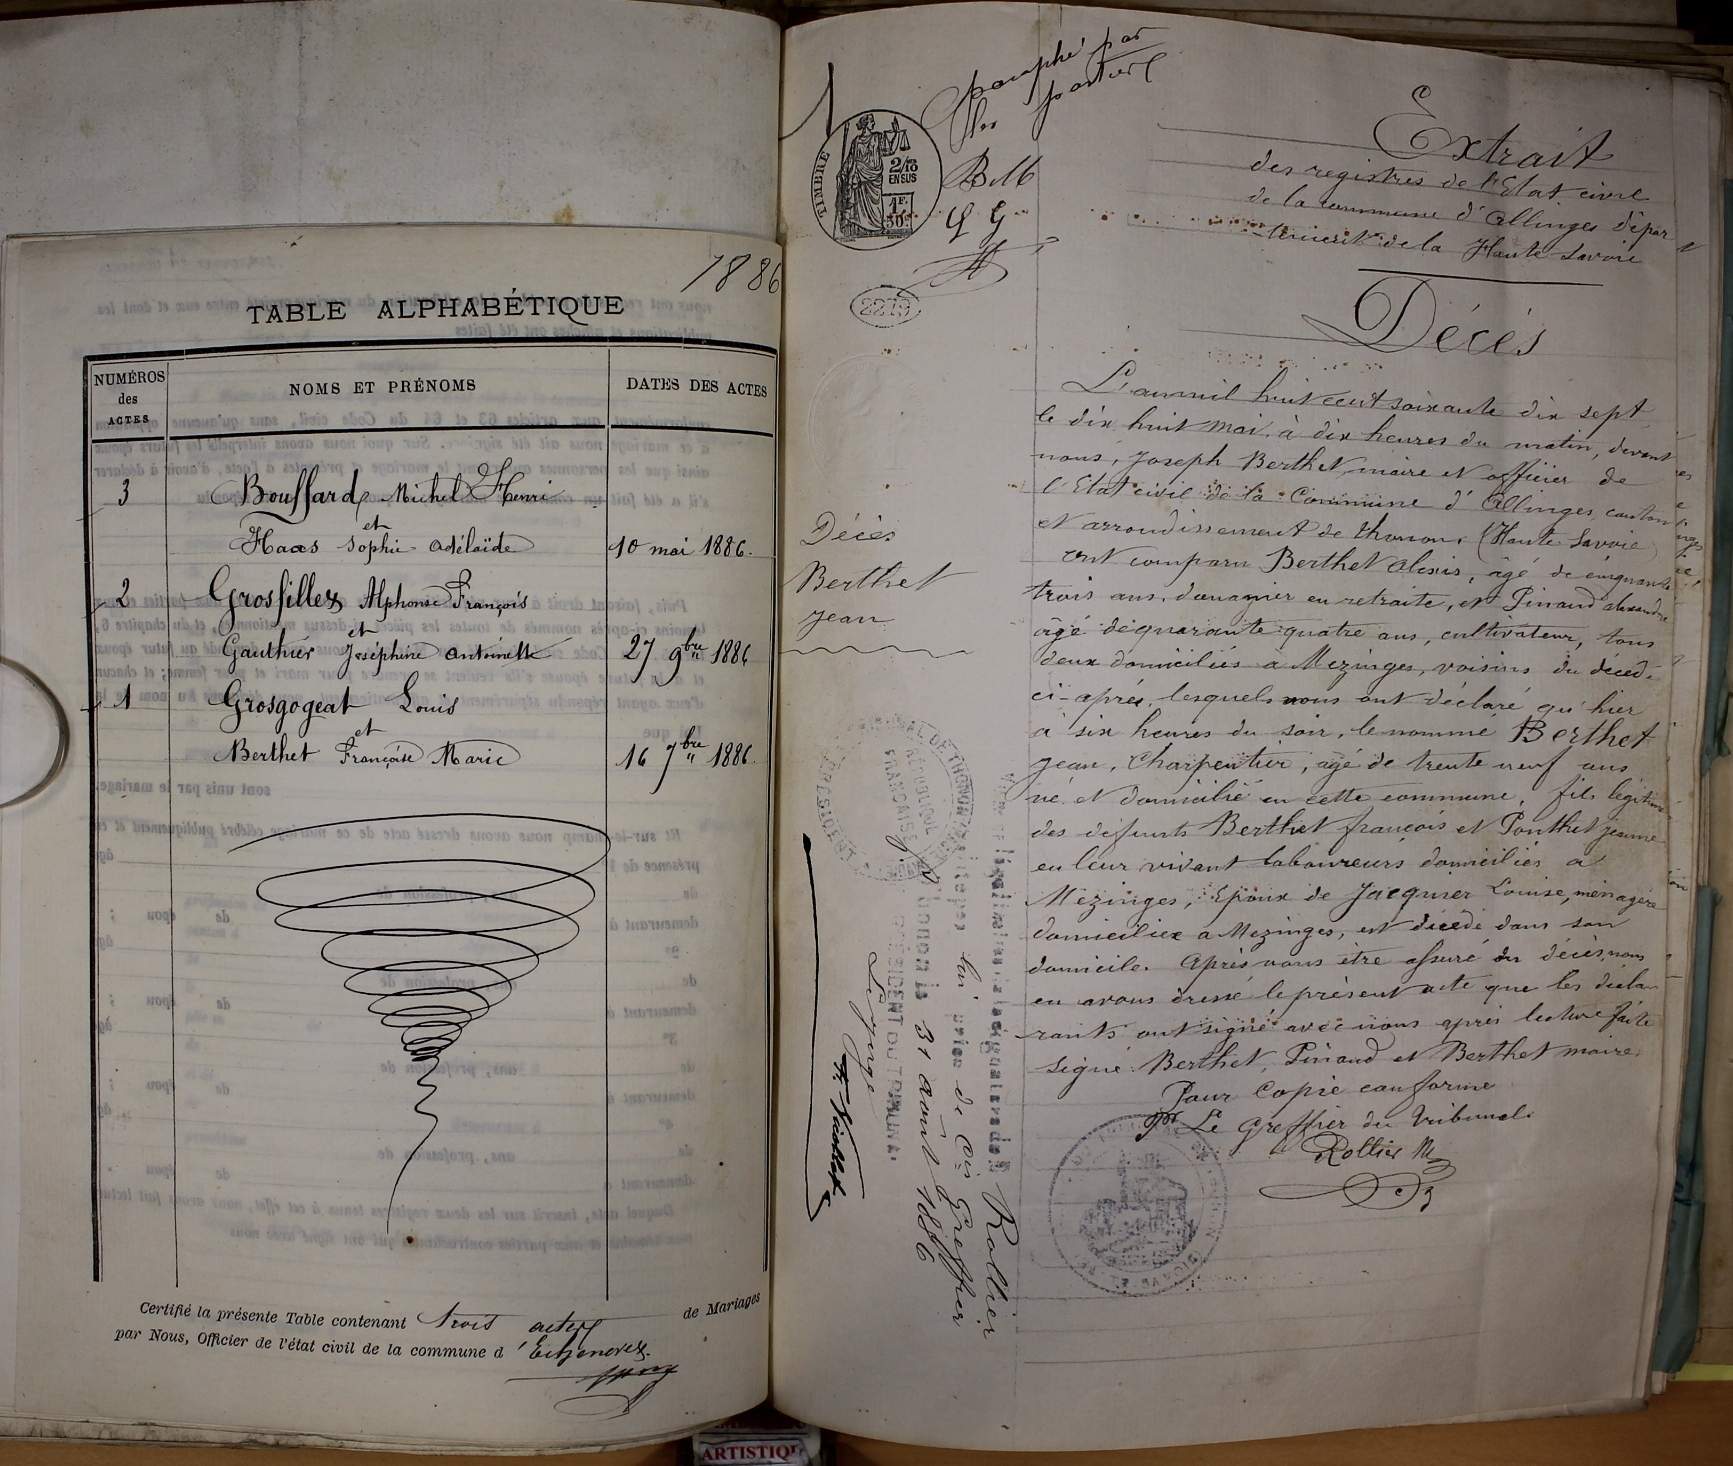 1886
TABLE ALPHABÉTIQUE
NUMÉROS des ACTES
NOMS ET PRÉNOMS
DATES DES ACTES
3 Bouffard Michel Henri
et
Haas Sophie Adélaïde 10 mai 1886.
2 Grosfillex Alphonse François
et
Gauthier Joséphine Antoinette 27 9bre 1886
1 Grosgogeat Louis
et
Berthet Françoise Marie 16 7bre 1886.
Certifié la présente Table contenant trois actes de Mariages
par Nous, Officier de l'état civil de la commune d'Echenevex.
ARTISTIQU
paraphé par
les parties
TIMBRE
2/10
EN SUS
1F.
50c
B M
G
2279
Extrait
des registres de l'Etat civil
de la commune d'Allinges dépar
tement de la Haute Savoie
Décès
Décès
Berthet
Jean
L'an mil huit cent soixante dix sept
le dix huit mai à dix heures du matin, devant
nous, Joseph Berthet, maire et officier de
l'Etat civil de la Commune d'Allinges, canton
et arrondissement de Thonon, (Haute Savoie)
ont comparu Berthet Alexis, âgé de cinquante
trois ans, douanier en retraite, et Pinaud alexandre
âgé de quarante quatre ans, cultivateur, tous
deux domiciliés a Mezinges, voisins du décédé
ci-après, lesquels nous ont déclaré qu'hier
à six heures du soir, le nommé Berthet
Jean, Charpentier, agé de trente neuf ans
né et domicilié en cette commune, fils légitime
des défunts Berthet françois et Ponthet jeanne
en leur vivant laboureurs domiciliés a
Mezinges, Epoux de Jacquier Louise, ménagère
domiciliée a Mezinges, est décédé dans son
domicile. Après nous être assuré du décès, nous
en avons dressé le présent acte que les décla
rants ont signé avec nous après lecture faite
signé Berthet, Pinaud et Berthet maire.
Pour Copie conforme
Pr Le Greffier du Tribunal
Rollier
RÉPUBLIQUE
FRANÇAISE
légalisation de la signature de M Rollier
apposée ci
Greffier
Thonon le 31 août 1886
PRÉSIDENT DU TRIBUNAL
Le juge